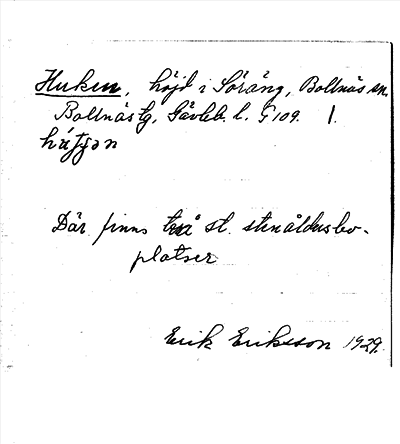 Huken, höjd i Söräng, Bollnäs sn.
Bollnäs tg, Gävleb. l. G 109. 1.
Där finns två st. stenåldersbo-
platser
Erik Eriksson 1929.